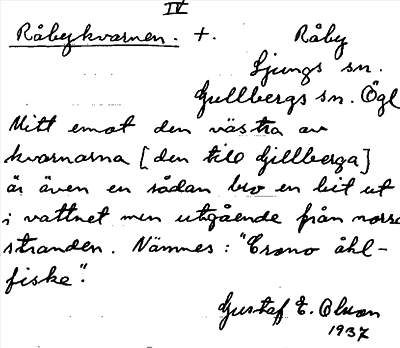 IV
Råbykvarnen. +. Råby
Ljungs sn.
Gullbergs sn. Ögl
Mitt emot den västra av
kvarnarna [den till Gillberga]
är även en sådan bro en bit ut
i vattnet men utgående från norra
stranden. Nämnes: "Crono åhl-
fiske".
Gustaf E. Olson
1937